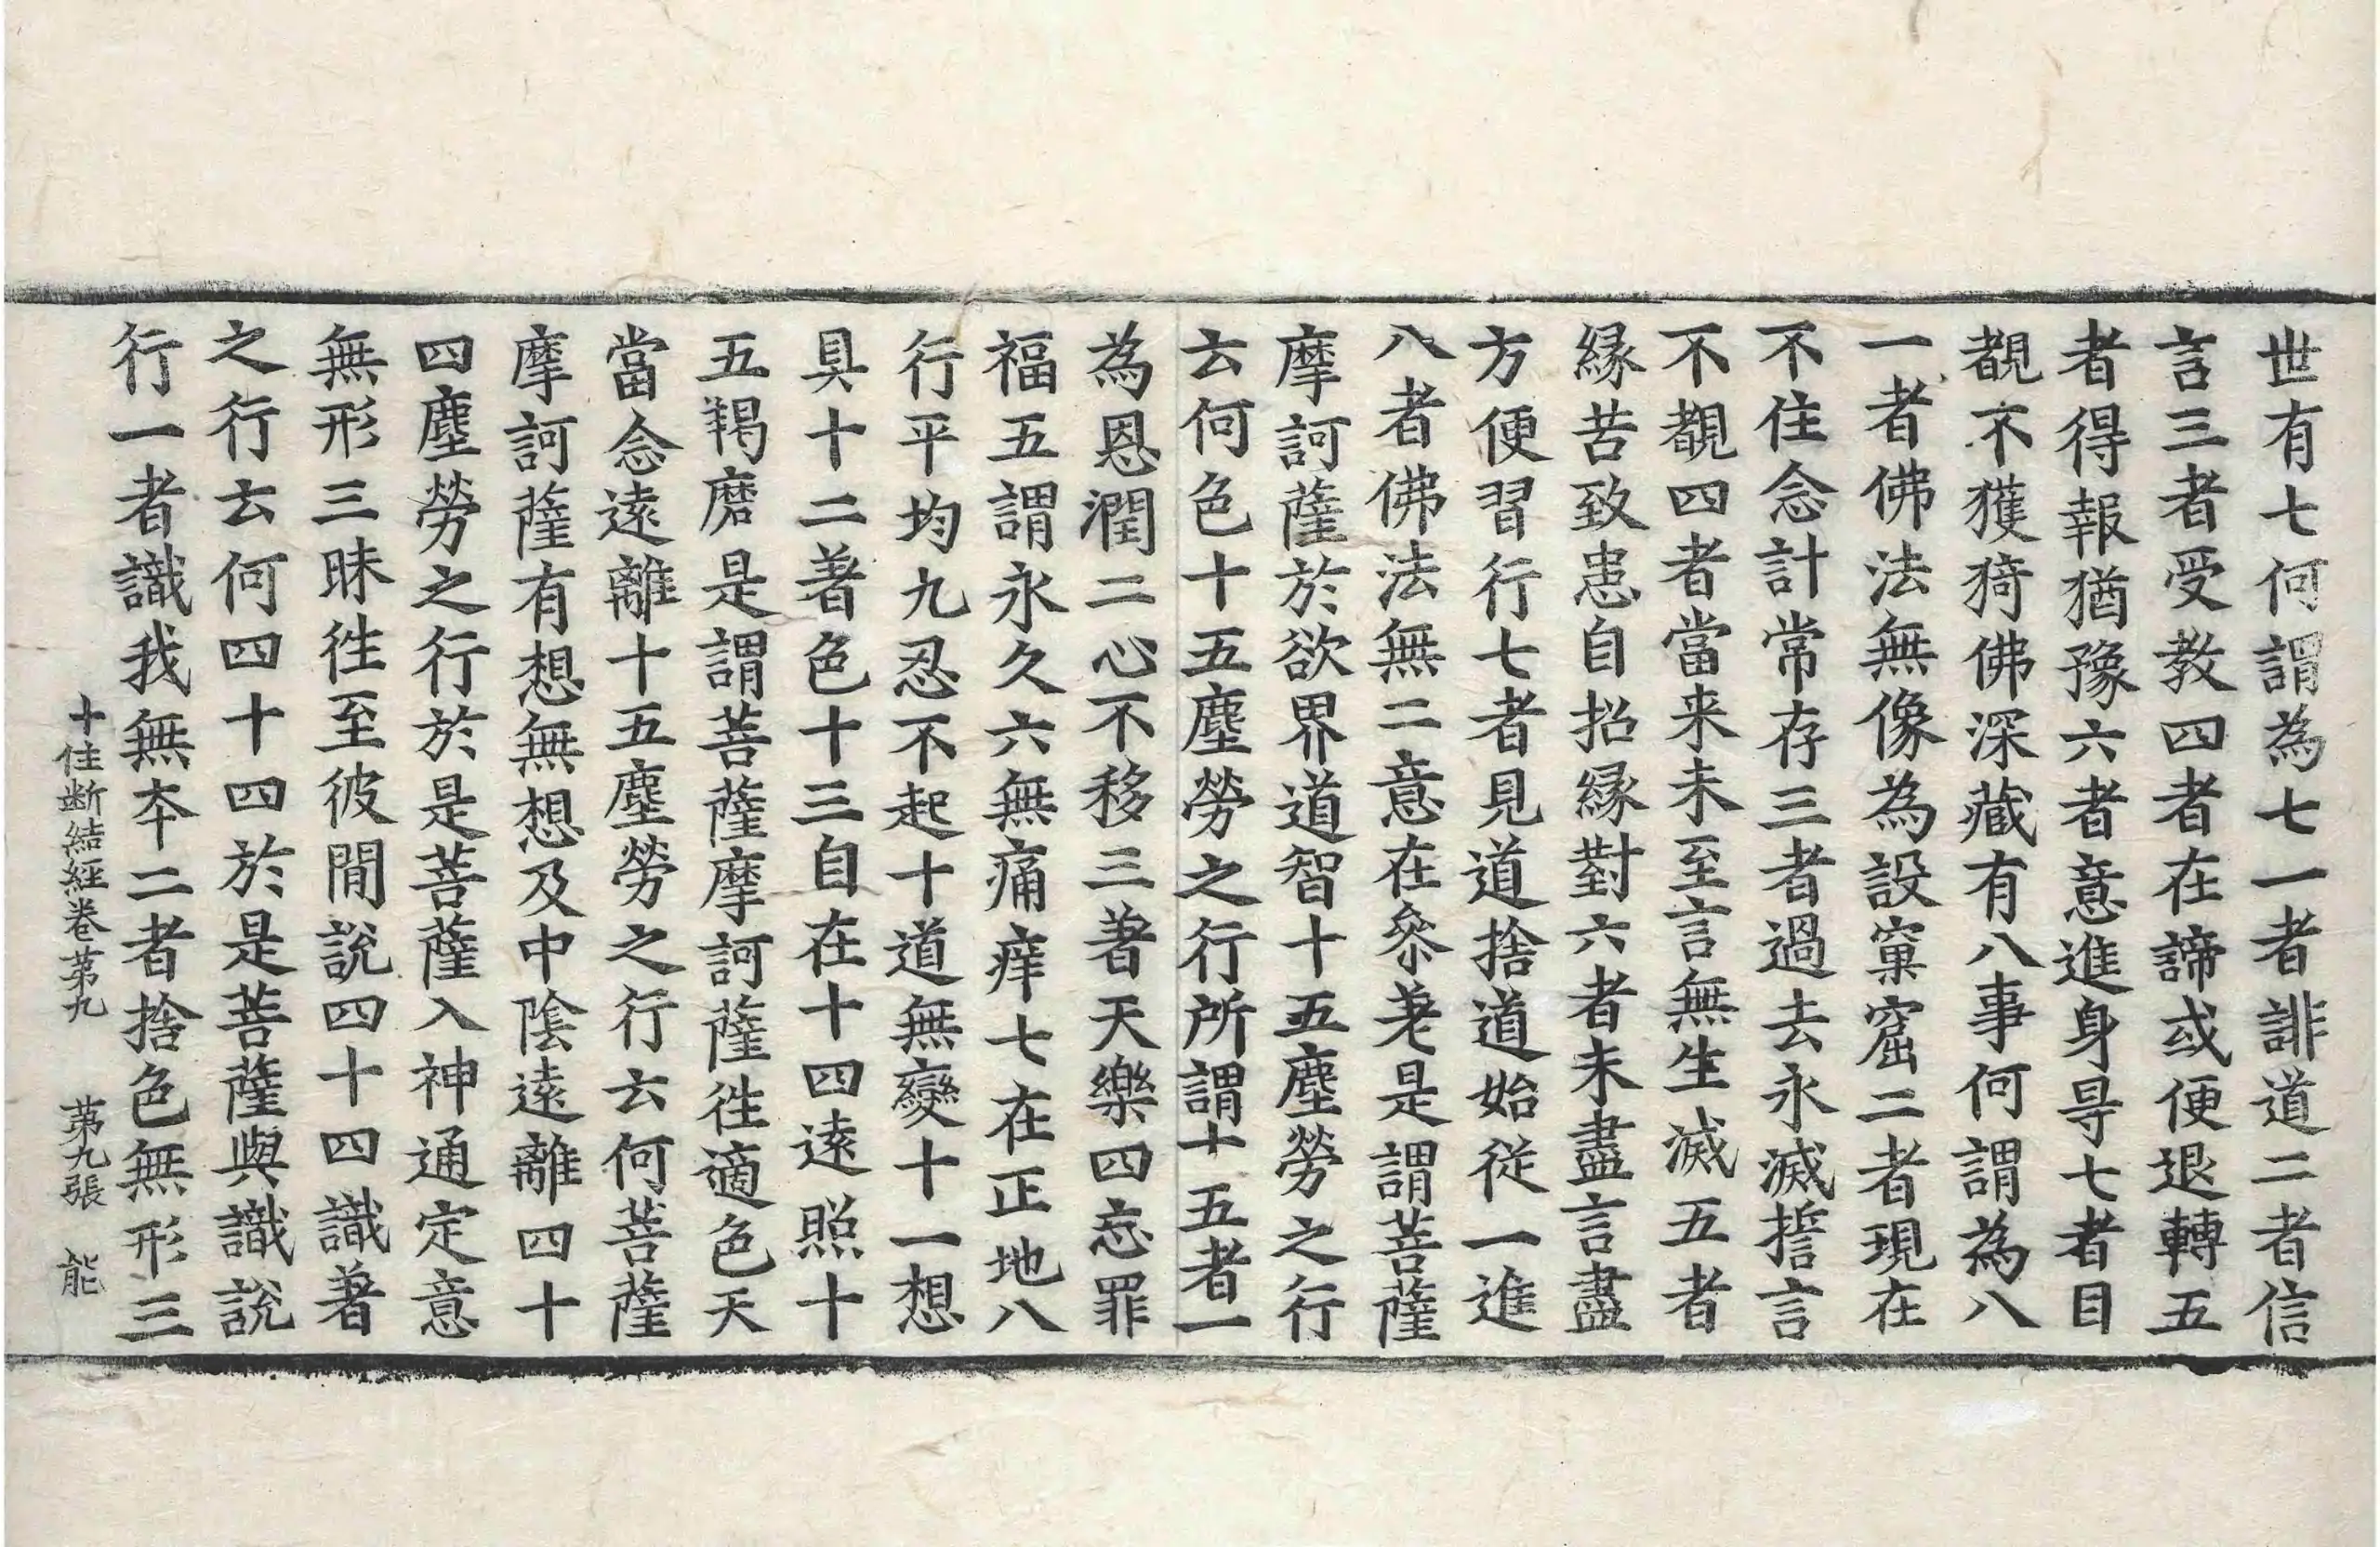 世有七何謂為七一者誹道二者信
言三者受教四者在諦或便退轉五
者得報猶豫六者意進身㝵七者目
覩不獲猗佛深藏有八事何謂為八
一者佛法無像為設窠窟二者現在
不住念計常存三者過去永滅誓言
不覩四者當来未至言無生滅五者
縁苦致患自招縁對六者未盡言盡
方便習行七者見道捨道始從一進
八者佛法無二意在叅差是謂菩薩
摩訶薩於欲界道智十五塵勞之行
云何色十五塵勞之行所謂十五者一
為恩潤二心不移三著天樂四忘罪
福五謂永久六無痛痒七在正地八
行平均九忍不起十道無變十一想
具十二著色十三自在十四遠照十
五羯磨是謂菩薩摩訶薩徃適色天
當念遠離十五塵勞之行云何菩薩
摩訶薩有想無想及中陰遠離四十
四塵勞之行於是菩薩入神通定意
無形三昧徃至彼間說四十四識著
之行云何四十四於是菩薩與識說
行一者識我無夲二者捨色無形三
十住斷結經卷苐九 苐九張 能